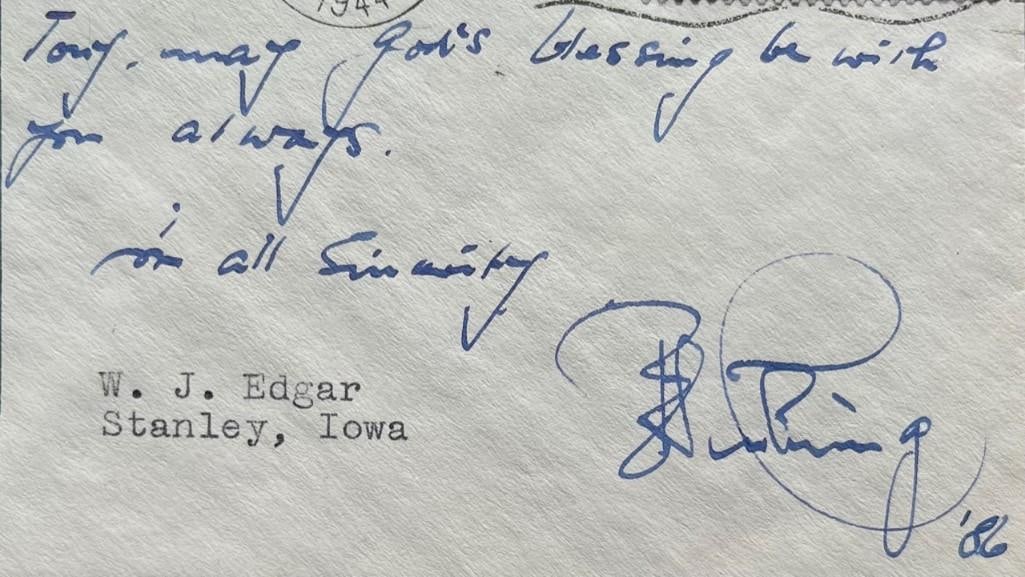 1944
Tony, may God's blessing be with
you always.
in all Sincerity
W. J. Edgar
Stanley, Iowa
'86